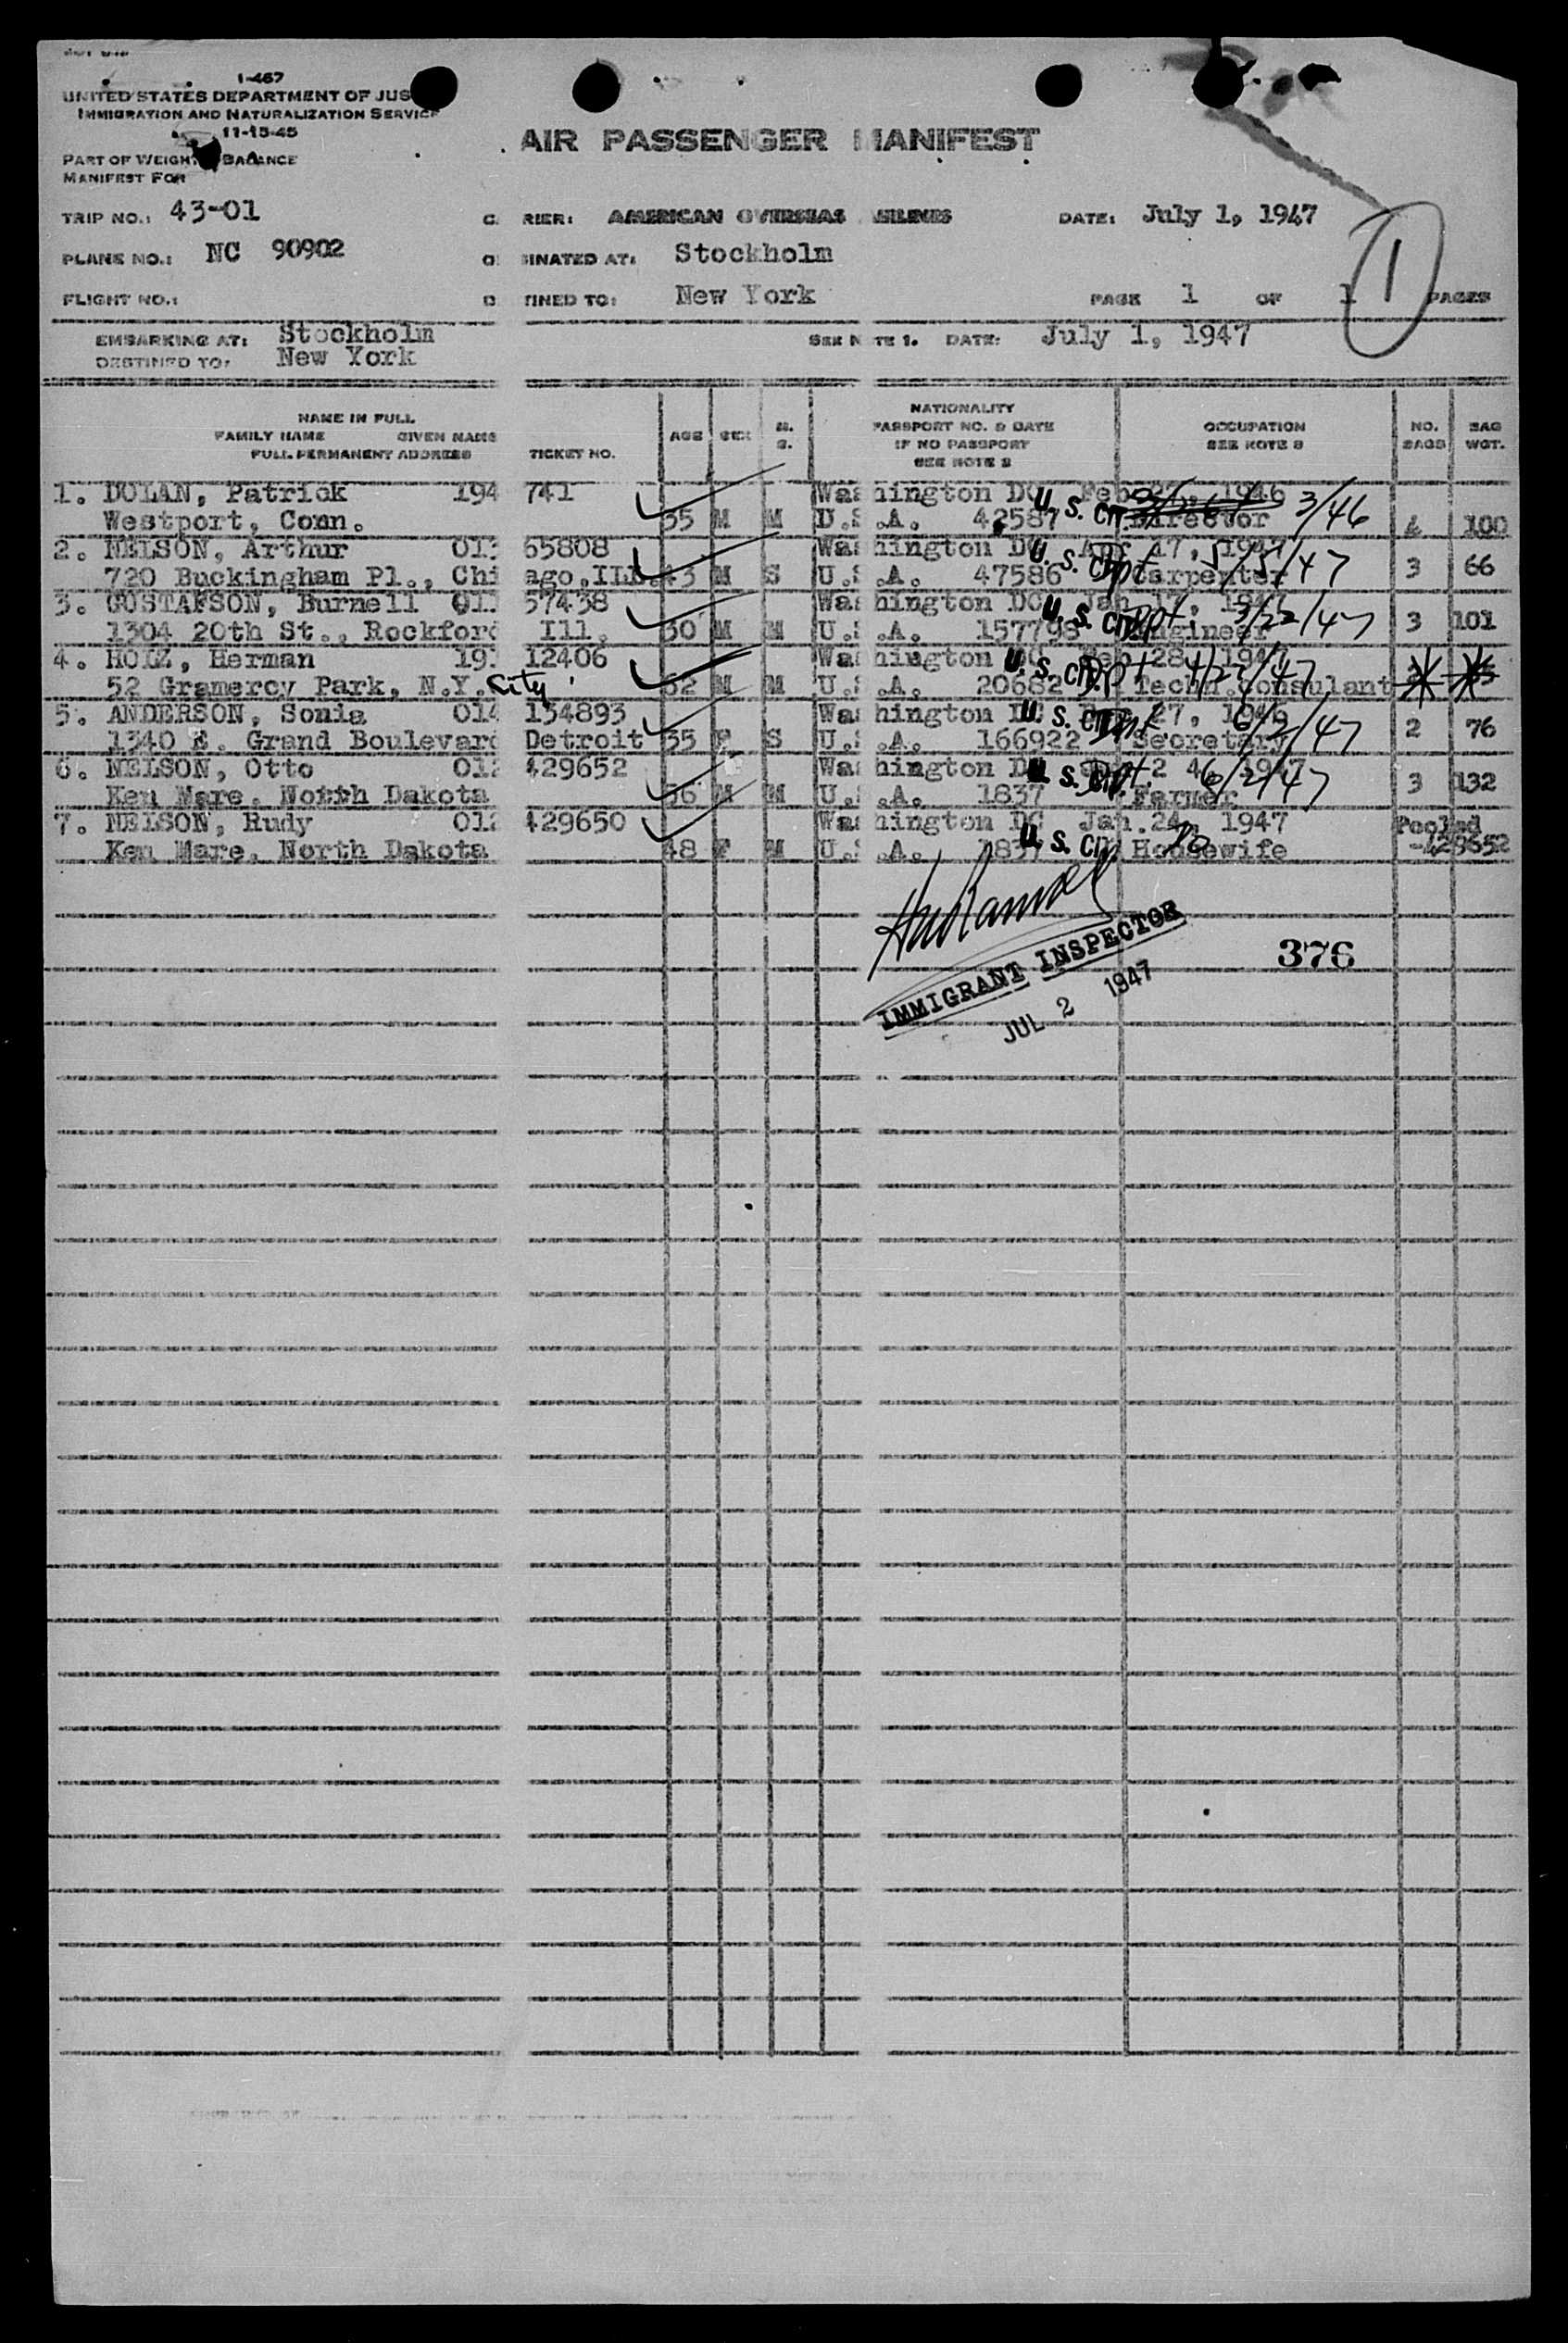 1-467
UNITED STATES DEPARTMENT OF JUS
IMMIGRATION AND NATURALIZATION SERVICE
11-15-45
AIR PASSENGER MANIFEST
PART OF WEIGHT BALANCE
MANIFEST FOR
TRIP NO.: 43-01 C RIER: AMERICAN OVERSEAS AIRLINES DATE: July 1, 1947
PLANE NO.: NC 90902 INATED AT: Stockholm
FLIGHT NO.: D TINED TO: New York PAGE 1 OF 1 PAGES
1
EMBARKING AT: Stockholm SEE NOTE 1. DATE: July 1, 1947
DESTINED TO: New York
NAME IN FULL
FAMILY NAME GIVEN NAME
FULL PERMANENT ADDRESS
TICKET NO.
AGE SEX M. S.
NATIONALITY
PASSPORT NO. & DATE
IF NO PASSPORT
SEE NOTE 2
OCCUPATION
SEE NOTE 3
NO. BAGS
BAG WGT.
1. DOLAN, Patrick 194 741 Washington DC Feb 27, 1946
Westport, Conn. 35 M M U.S.A. 42587 U. S. CIT. Director 3/46 4 100
2. NELSON, Arthur 013 65808 Washington DC Apr 17, 1947
720 Buckingham Pl., Chi ago, Ill. 43 M S U.S.A. 47586 U. S. CIT. Dpt Carpenter 5/5/47 3 66
3. GUSTAFSON, Burnell 01 57438 Washington DC Jan 17, 1947
1304 20th St., Rockford Ill. 30 M M U.S.A. 157798 U. S. CIT. Dpt. Engineer 3/22/47 3 101
4. HOLZ, Herman 19 12406 Washington DC Feb 28 194
52 Gramercy Park, N.Y. City 52 M M U.S.A. 20682 U. S. CIT. Dpt Techn. Consulant 4/22/47
5. ANDERSON, Sonia 014 134893 Washington DC 27, 1946
1340 E. Grand Boulevard Detroit 35 F S U.S.A. 166922 U. S. CIT. Dpt Secretary 6/2/47 2 76
6. NELSON, Otto 012 429652 Washington DC 1947
Ken Mare, North Dakota 56 M M U.S.A. 1837 U. S. Dpt. Farmer 6/2/47 3 132
7. NELSON, Rudy 012 429650 Washington DC Jan. 24, 1947 Pooled
Ken Mare, North Dakota 48 F M U.S.A. 1837 U. S. CIT. Do Housewife -429652
IMMIGRANT INSPECTOR
JUL 2 1947
376